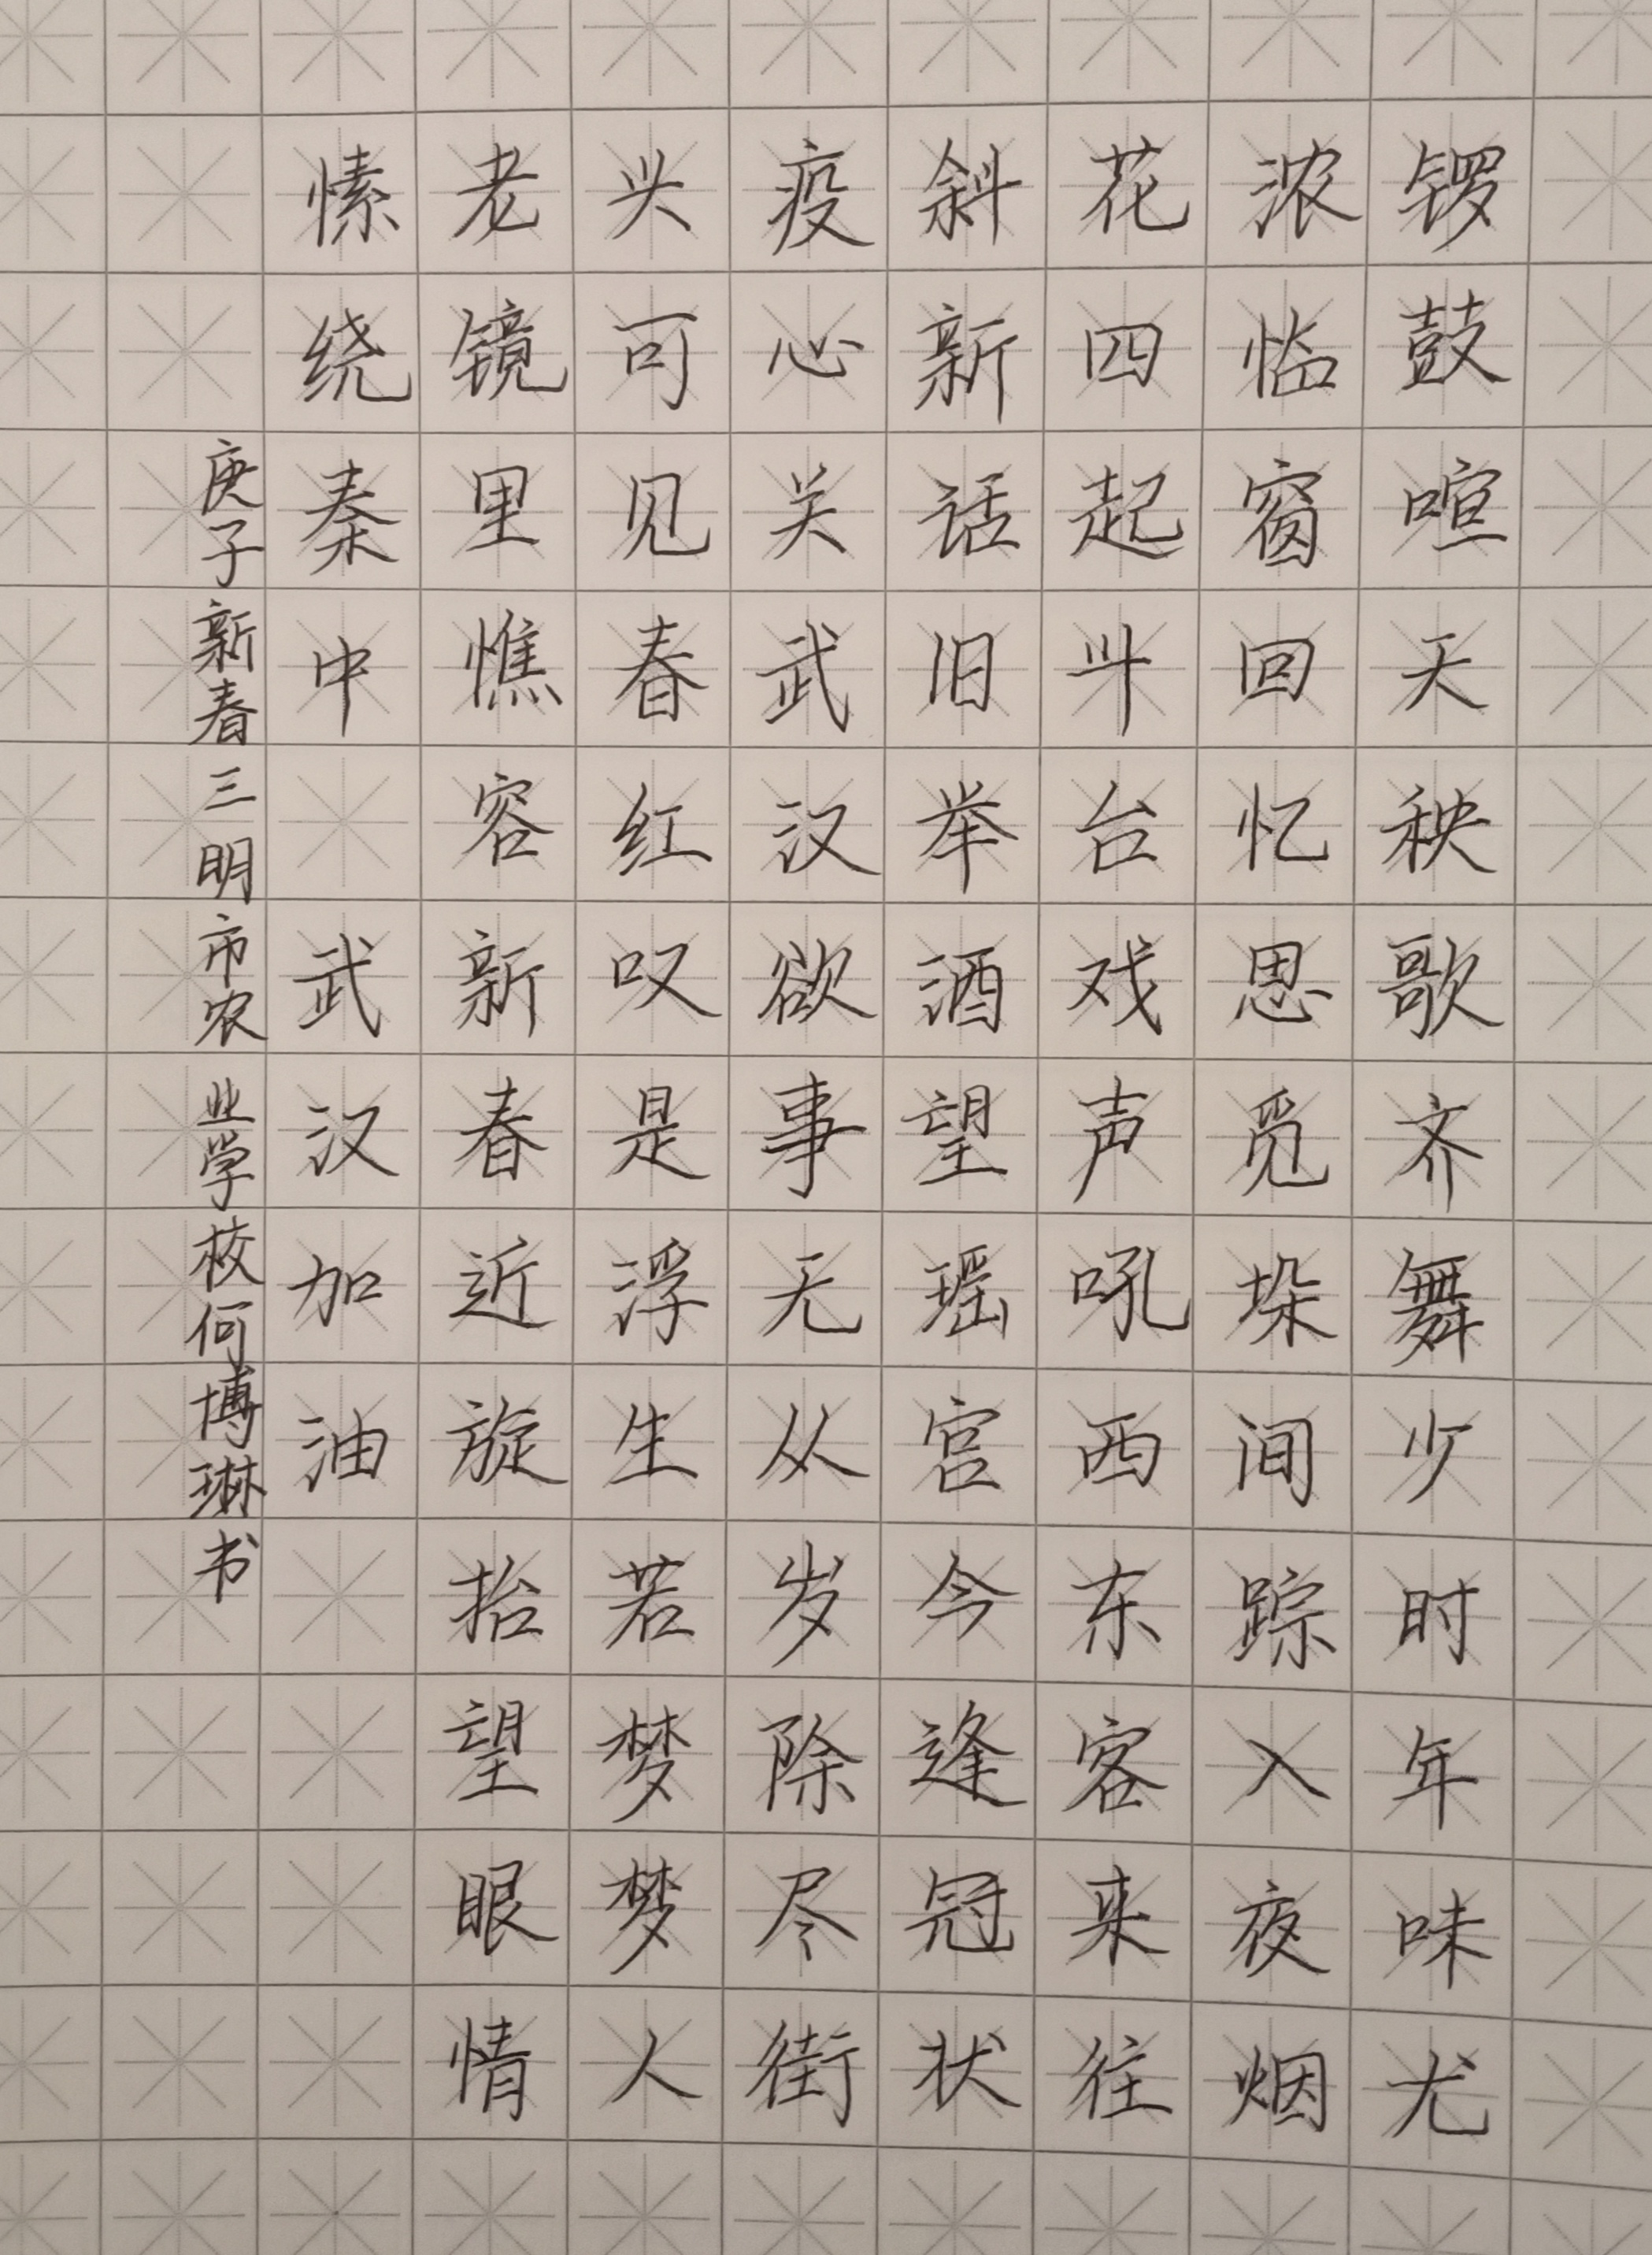 锣鼓喧天秧歌齐舞少时年味尤
浓临窗回忆思觅垛间踪入夜烟
花四起斗台戏声吼西东客来往
斜新话旧举酒望瑶宫今逢冠状
疫心关武汉欲事无从岁除尽街
头可见春红叹是浮生若梦梦人
老镜里憔容新春近旋抬望眼情
愫绕秦中 武汉加油
庚子新春三明市农业学校何博琳书